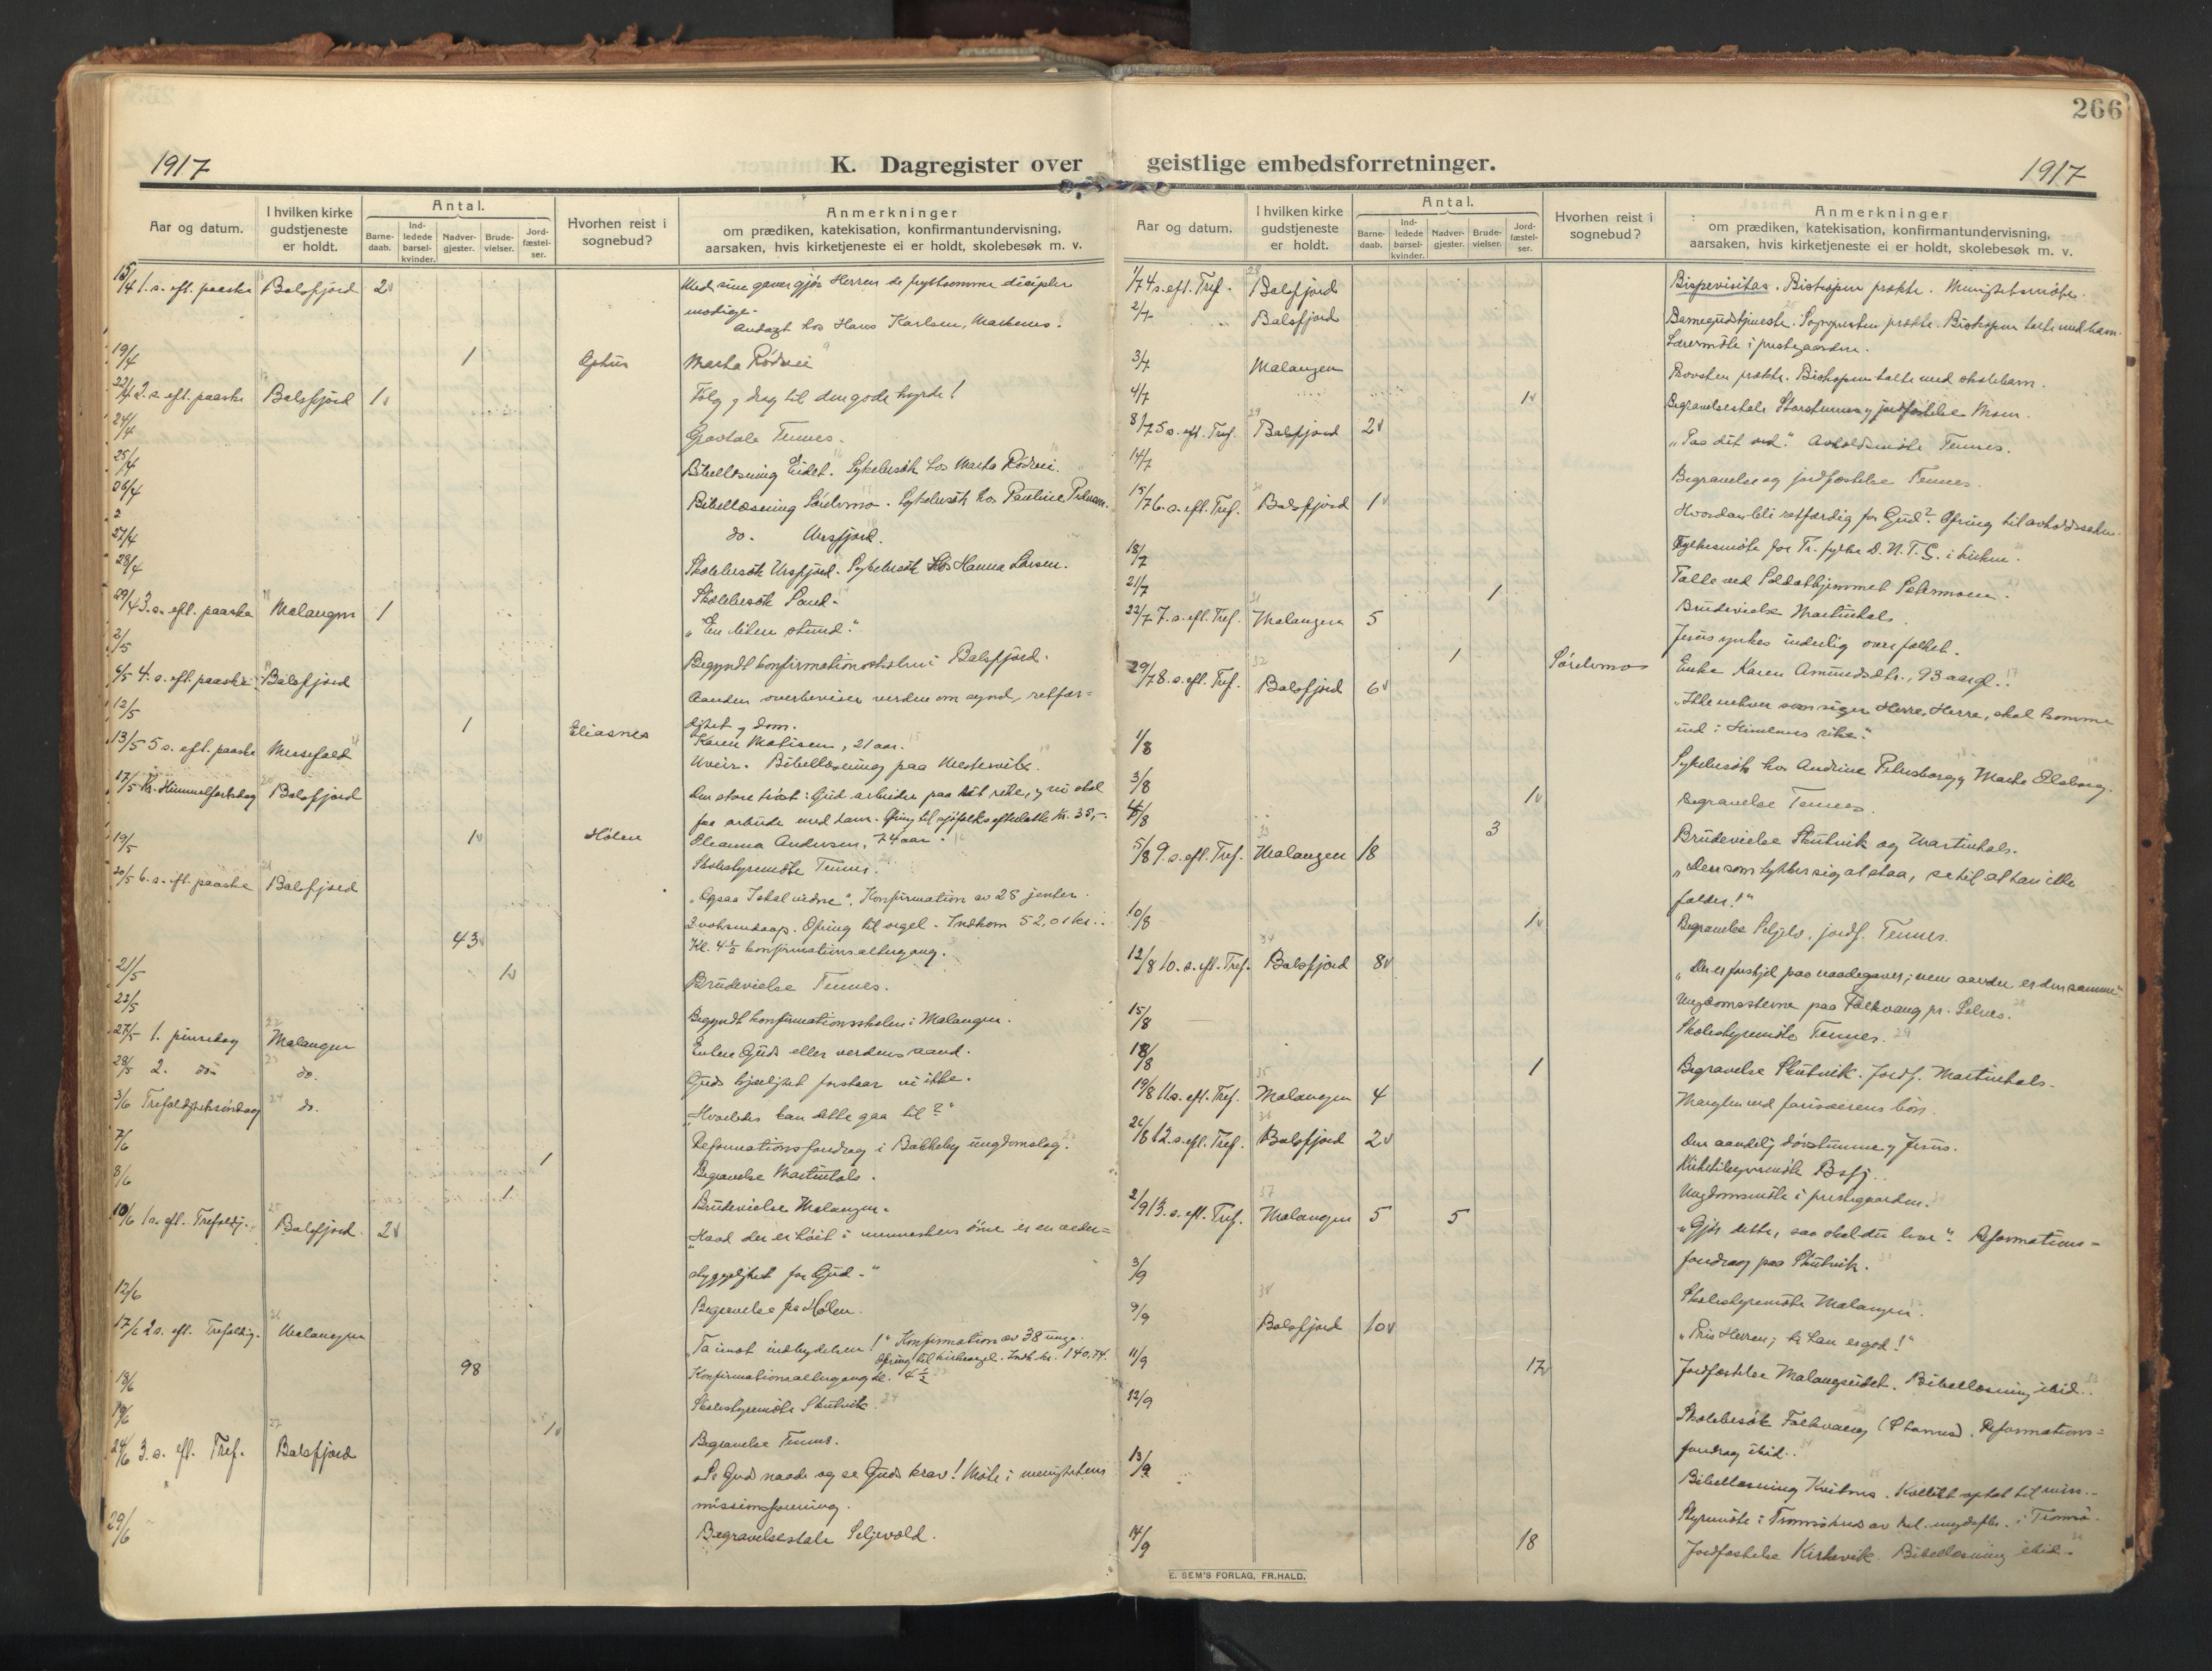 266
1917
K. Dagregister over geistlige embedsforretninger.
1917
Aar og datum.
I hvilken kirke gudstjeneste er holdt.
Antal.
Barne-daab.
Ind-ledede barsel-kvinder.
Nadver-gjester.
Brude-vielser.
Jord-fæstel-ser.
Hvorhen reist i sognebud?
Anmerkninger
om prædiken, katekisation, konfirmantundervisning,
aarsaken, hvis kirketjeneste ei er holdt, skolebesøk m. v.
15/4 1. s. eft. paaske Balsfjord 2 Med sine gaver gjør Herren de frygtsomme disciple
modige.
Andagt hos Hans Karlsen, Markenes.
19/4 1 Marta Rödnei
22/4 2. s. eft. paaske Balsfjord 1 Følg og drag til den gode hyrde!
24/4 Gravtale Tennes.
25/4 Bibellæsning Eidet. Sykebesök hos Marta Rödnei.
26/4 Bibellæsning Sörelvmo. Sykebesök hos Pauline
27/4 do. Ursfjord.
28/4 Skolebesök Ursfjord. Sykebesök hos Hanna Larsen.
Skolebesök Sand.
29/4 3. s. eft. paaske Malangen 1 "En liten stund."
2/5 Begyndt konfirmationsskolen i Balsfjord.
6/5 4. s. eft. paaske Balsfjord Aanden overbeviser verden om synd, retfær-
dighet og dom.
12/5 1 Eliasnes Karen Matisen, 21 aar.
13/5 5 s. eft. paaske Mesefald Uveir. Bibellæsning paa Mestervik.
17/5 Kr. Himmelfartsdag Balsfjord Den store tröst: Gud arbeider paa sit rike, og vi skal
faa arbeide med ham. Ofring til sjöfolks efterlatte Kr. 35,-
19/5 1 Hölen Oleanna Andersen, 74 aar.
Skolestyremöte Tennes.
20/5 6. s. eft. paaske Balsfjord "Ogsaa I skal vidne". Konfirmation av 28 jenter.
2 voksendaap. Ofring til orgel. Indkom 52,01 kr.
43 Kl. 4½ konfirmationsaltergang.
21/5 1 Brudevielse Tennes.
22/5 Begyndt konfirmationsskolen i Malangen.
27/5 1. pinsedag Malangen Enten Guds eller verdens aand.
28/5 2. do. do. Guds kjærlighet forstaar vi ikke.
3/6 Trefoldighetssöndag do. "Hvorledes kan dette gaa til?"
7/6 Reformationsforedrag i Bakkeby ungdomslag.
8/6 1 Begravelse Martinhals.
1 Brudevielse Malangen.
10/6 1 s. eft. Trefoldigh. Balsfjord 2 "Hvad der er höit i menneskers öine er en veder-
styggelighet for Gud."
12/6 Begravelse fra Hölen.
17/6 2 s. eft. Trefoldig. Malangen "Ta imot indbydelsen!" Konfirmation av 38 unge.
Ofring til kirkeorgel. Indk. kr. 140,74.
98 Konfirmationsaltergang kl. 4½
18/6 Skolestyremöte Skutvik.
19/6 1 Begravelse Tennes.
24/6 3. s. eft. Tref. Balsfjord "Se Guds naade og se Guds krav! Möte i menighetens
missionsforening.
29/6 Begravelsestale Seljevold.
Aar og datum.
I hvilken kirke gudstjeneste er holdt.
Antal.
Barne-daab.
Ind-ledede barsel-kvinder.
Nadver-gjester.
Brude-vielser.
Jord-fæstel-ser.
Hvorhen reist i sognebud?
Anmerkninger
om prædiken, katekisation, konfirmantundervisning,
aarsaken, hvis kirketjeneste ei er holdt, skolebesøk m. v.
1/7 4 s. eft. Tref. Balsfjord Bispevisitas. Biskopen prækte. Menighetsmöte.
2/7 Balsfjord Barnegudstjeneste. Sognepresten prækte. Biskopen talte med barn.
Lærermöte i prestegaarden.
3/7 Malangen Provsten prækte. Biskopen talte med skolebarn.
4/7 1 Begravelsestale Storsteinnes og jordfæstelse Moen.
8/7 5 s. eft. Tref. Balsfjord 2 "Paa dit ord." Avholdsmöte Tennes.
14/7 Begravelse og jordfæstelse Tennes.
15/7 6. s. eft. Tref. Balsfjord 1 Hvordan bli retfærdig for Gud? Ofring til avholdssaken.
18/7 Fylkesmöte for Tr. fylke D.N.T.S. i kirken.
Talte ved Soldathjemmet Setermoen.
21/7 1 Brudevielse Martinhals.
22/7 7. s. eft. Tref. Malangen 5 Jesus ynkes inderlig over folket.
1 Sörelvmo Enke Karen Amundsdtr., 93 aar gl.
29/7 8. s. eft. Tref. Balsfjord 6 "Ikke enhver som siger Herre, Herre, skal komme
ind i Himlenes rike."
1/8 Sykebesök hos Andrine Petersborg og Marta Elsborg.
3/8 1 Begravelse Tennes.
4/8 3 Brudevielse Skutvik og Martinhals.
5/8 9. s. eft. Tref. Malangen 18 "Den som tykkes sig at staa, se til at han ikke
falder!"
10/8 1 Begravelse Seljelv, jordf. Tennes.
12/8 10. s. eft. Tref. Balsfjord 8 "Der er forskjel paa naadegaver; men aanden er den samme".
Ungdomsstevne paa Folkvang pr. Selnes.
15/8 Skolestyremöte Tennes.
18/8 1 Begravelse Skutvik. Jordf. Martinhals.
19/8 11 s. eft. Tref. Malangen 4 Mangler ved farisæerens bön.
26/8 12. s. eft. Tref. Balsfjord 2 Den aandelig dövstumme og Jesus.
Kirketilsynsmöte Bsfj.
Ungdomsmöte i prestegaarden.
2/9 13. s. eft. Tref. Malangen 5 5 "Gjör dette, saa skal du leve". Reformations-
foredrag paa Skutvik.
3/9 Skolestyremöte Malangen.
9/9 Balsfjord 10 "Pris Herren; ti han er god!"
11/9 17 Jordfæstelse Malangseidet. Bibellæsning ibid.
12/9 Skolebesök Folkvang. Reformations-
foredrag ibid.
13/9 Bibellæsning Kvitnes. Kollekt optat til miss.
Styremöte i Tromsö
14/9 18 Jordfæstelse Kirkevik. Bibellæsning ibid.
E. SEM'S FORLAG, FR.HALD.